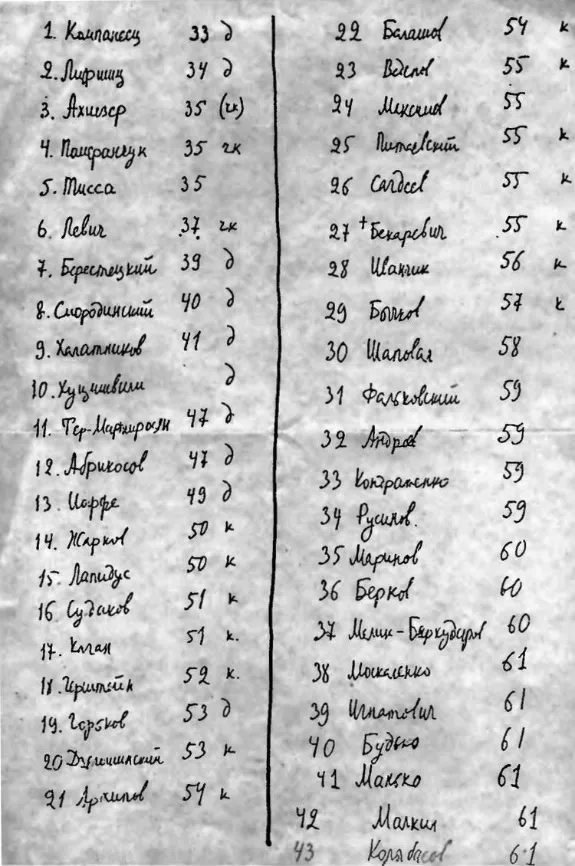 1. Компанеец 33 д
2. Лифшиц 34 д
3. Ахиезер 35 (чк)
4. Померанчук 35 чк
5. Тисса 35
6. Левич 37 чк
7. Берестецкий 39 д
8. Смородинский 40 д
9. Халатников 41 д
10. Хуцишвили д
11. Тер-Мартиросян 47 д
12. Абрикосов 47 д
13. Иоффе 49 д
14. Жарков 50 к
15. Лапидус 50 к
16 Судаков 51 к
17. Каган 51 к.
18. Герштейн 52 к.
19. Горьков 53 д
20 Дзялошинский 53 к
21 Архипов 54 к
22 Балашов 54 к
23 Веденов 55 к
24 Максимов 55
25 Питаевский 55 к
26 Сагдеев 55 к
27 +Бекаревич 55 к
28 Иванчик 56 к
29 Бычков 57 к
30 Шаповал 58
31 Фальковский 59
32 Андреев 59
33 Контратенко 59
34 Русинов. 59
35 Маринов 60
36 Берков 60
37 Мелик-Бархударов 60
38 Москаленко 61
39 Игнатович 61
40 Будько 61
41 Манько 61
42 Малкин 61
43 Колыбасов 61